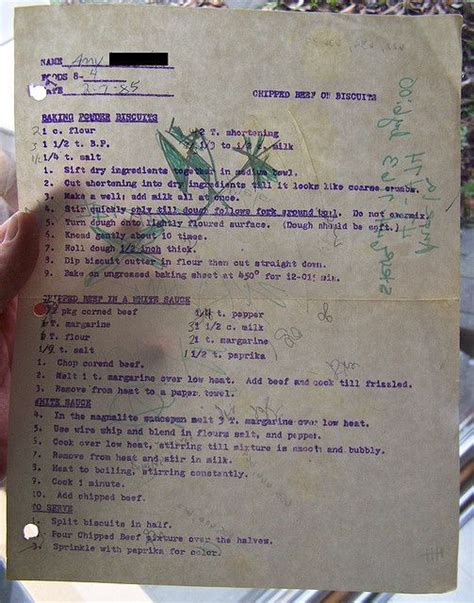 NAME Amy
FOODS 8- 4
DATE 2-7-85
CHIPPED BEEF ON BISCUITS
BAKING POWDER BISCUITS
1 c. flour
2 T. shortening
1 1/2 t. B.P.
1/3 to 1/2 c. milk
1/4 t. salt
1. Sift dry ingredients together in medium bowl.
2. Cut shortening into dry ingredients till it looks like coarse crumbs.
3. Make a well; add milk all at once.
4. Stir quickly only till dough follows fork around bowl. Do not overmix.
5. Turn dough onto lightly floured surface. (Dough should be soft.)
6. Knead gently about 10 times.
7. Roll dough 1/2 inch thick.
8. Dip biscuit cutter in flour then cut straight down.
9. Bake on ungreased baking sheet at 450° for 12-15 min.
CHIPPED BEEF IN A WHITE SAUCE
pkg corned beef
t. pepper
T. margarine
1 1/2 c. milk
T flour
t. margarine
t. salt
1/2 t. paprika
1. Chop corend beef.
2. Melt 1 t. margarine over low heat. Add beef and cook till frizzled.
3. Remove from heat to a paper towel.
WHITE SAUCE
4. In the magnalite saucepan melt 3 T. margarine over low heat.
5. Use wire whip and blend in flour, salt, and pepper.
6. Cook over low heat, stirring till mixture is smooth and bubbly.
7. Remove from heat and stir in milk.
8. Heat to boiling, stirring constantly.
9. Cook 1 minute.
10. Add chipped beef.
TO SERVE
1. Split biscuits in half.
2. Pour Chipped Beef mixture over the halves.
3. Sprinkle with paprika for color.